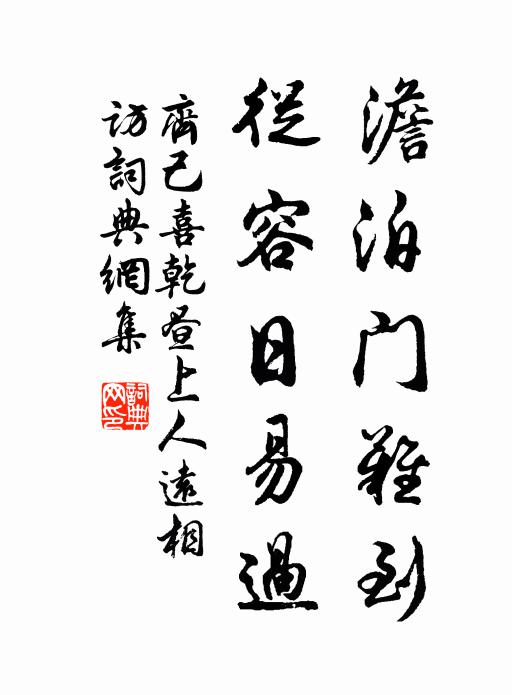 澹泊門難到
從容日易過
齊己喜乾晝上人遠相
訪詞典網集
詞典網印